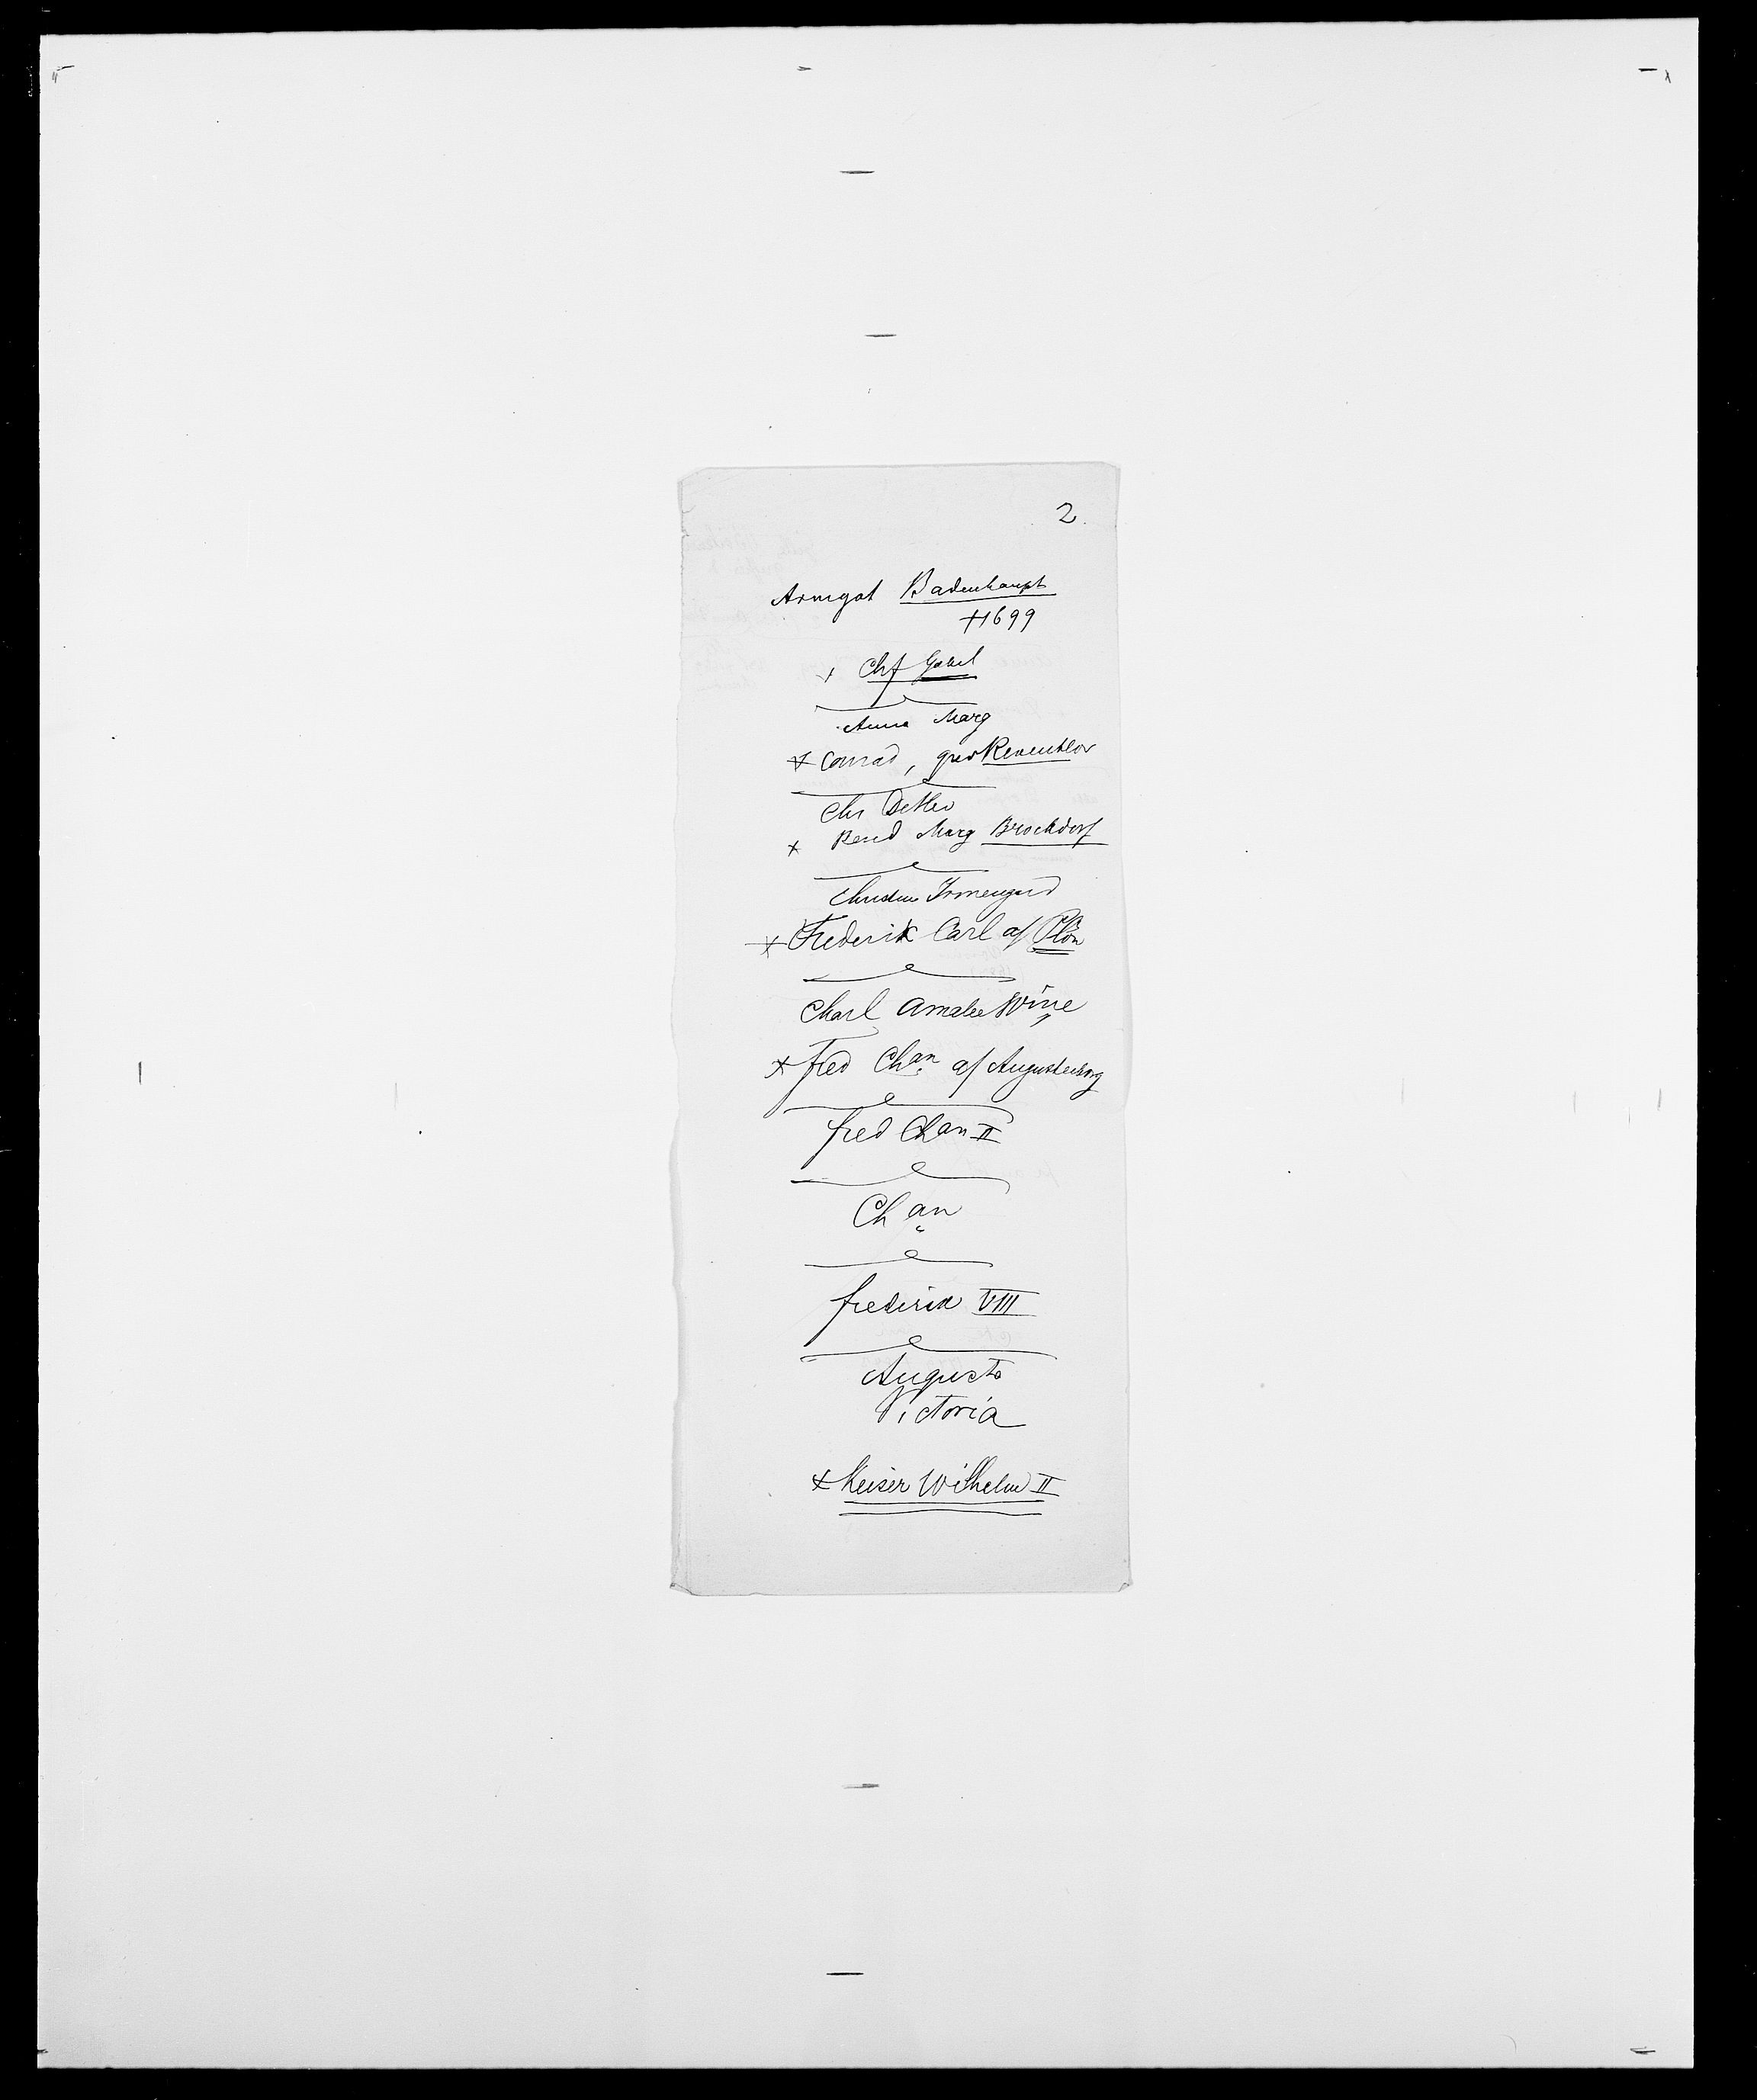 2.
Armgot Badenhaupt
†1699
x Chf Gabel
Anna Marg
x Conrad, grev Reventlov
Chr Detlev
x Bend Marg Brockdorf
Christine Irmengard
x Frederik Carl af Plön
Charl Amalie Wine
x Fred Chan af Augustenborg
fred Chan II
Chan
frederik VIII
Augusta
Victoria
x Keiser Wilhelm II